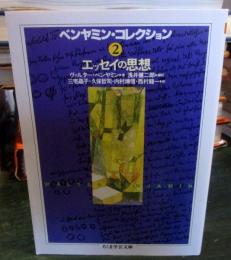 ベンヤミン・コレクション
2
エッセイの思想
ヴァルター・ベンヤミン 著 浅井健二郎 編訳
三宅晶子・久保哲司・内村博信・西村龍一 訳
WALTER BENJAMIN
ちくま学芸文庫